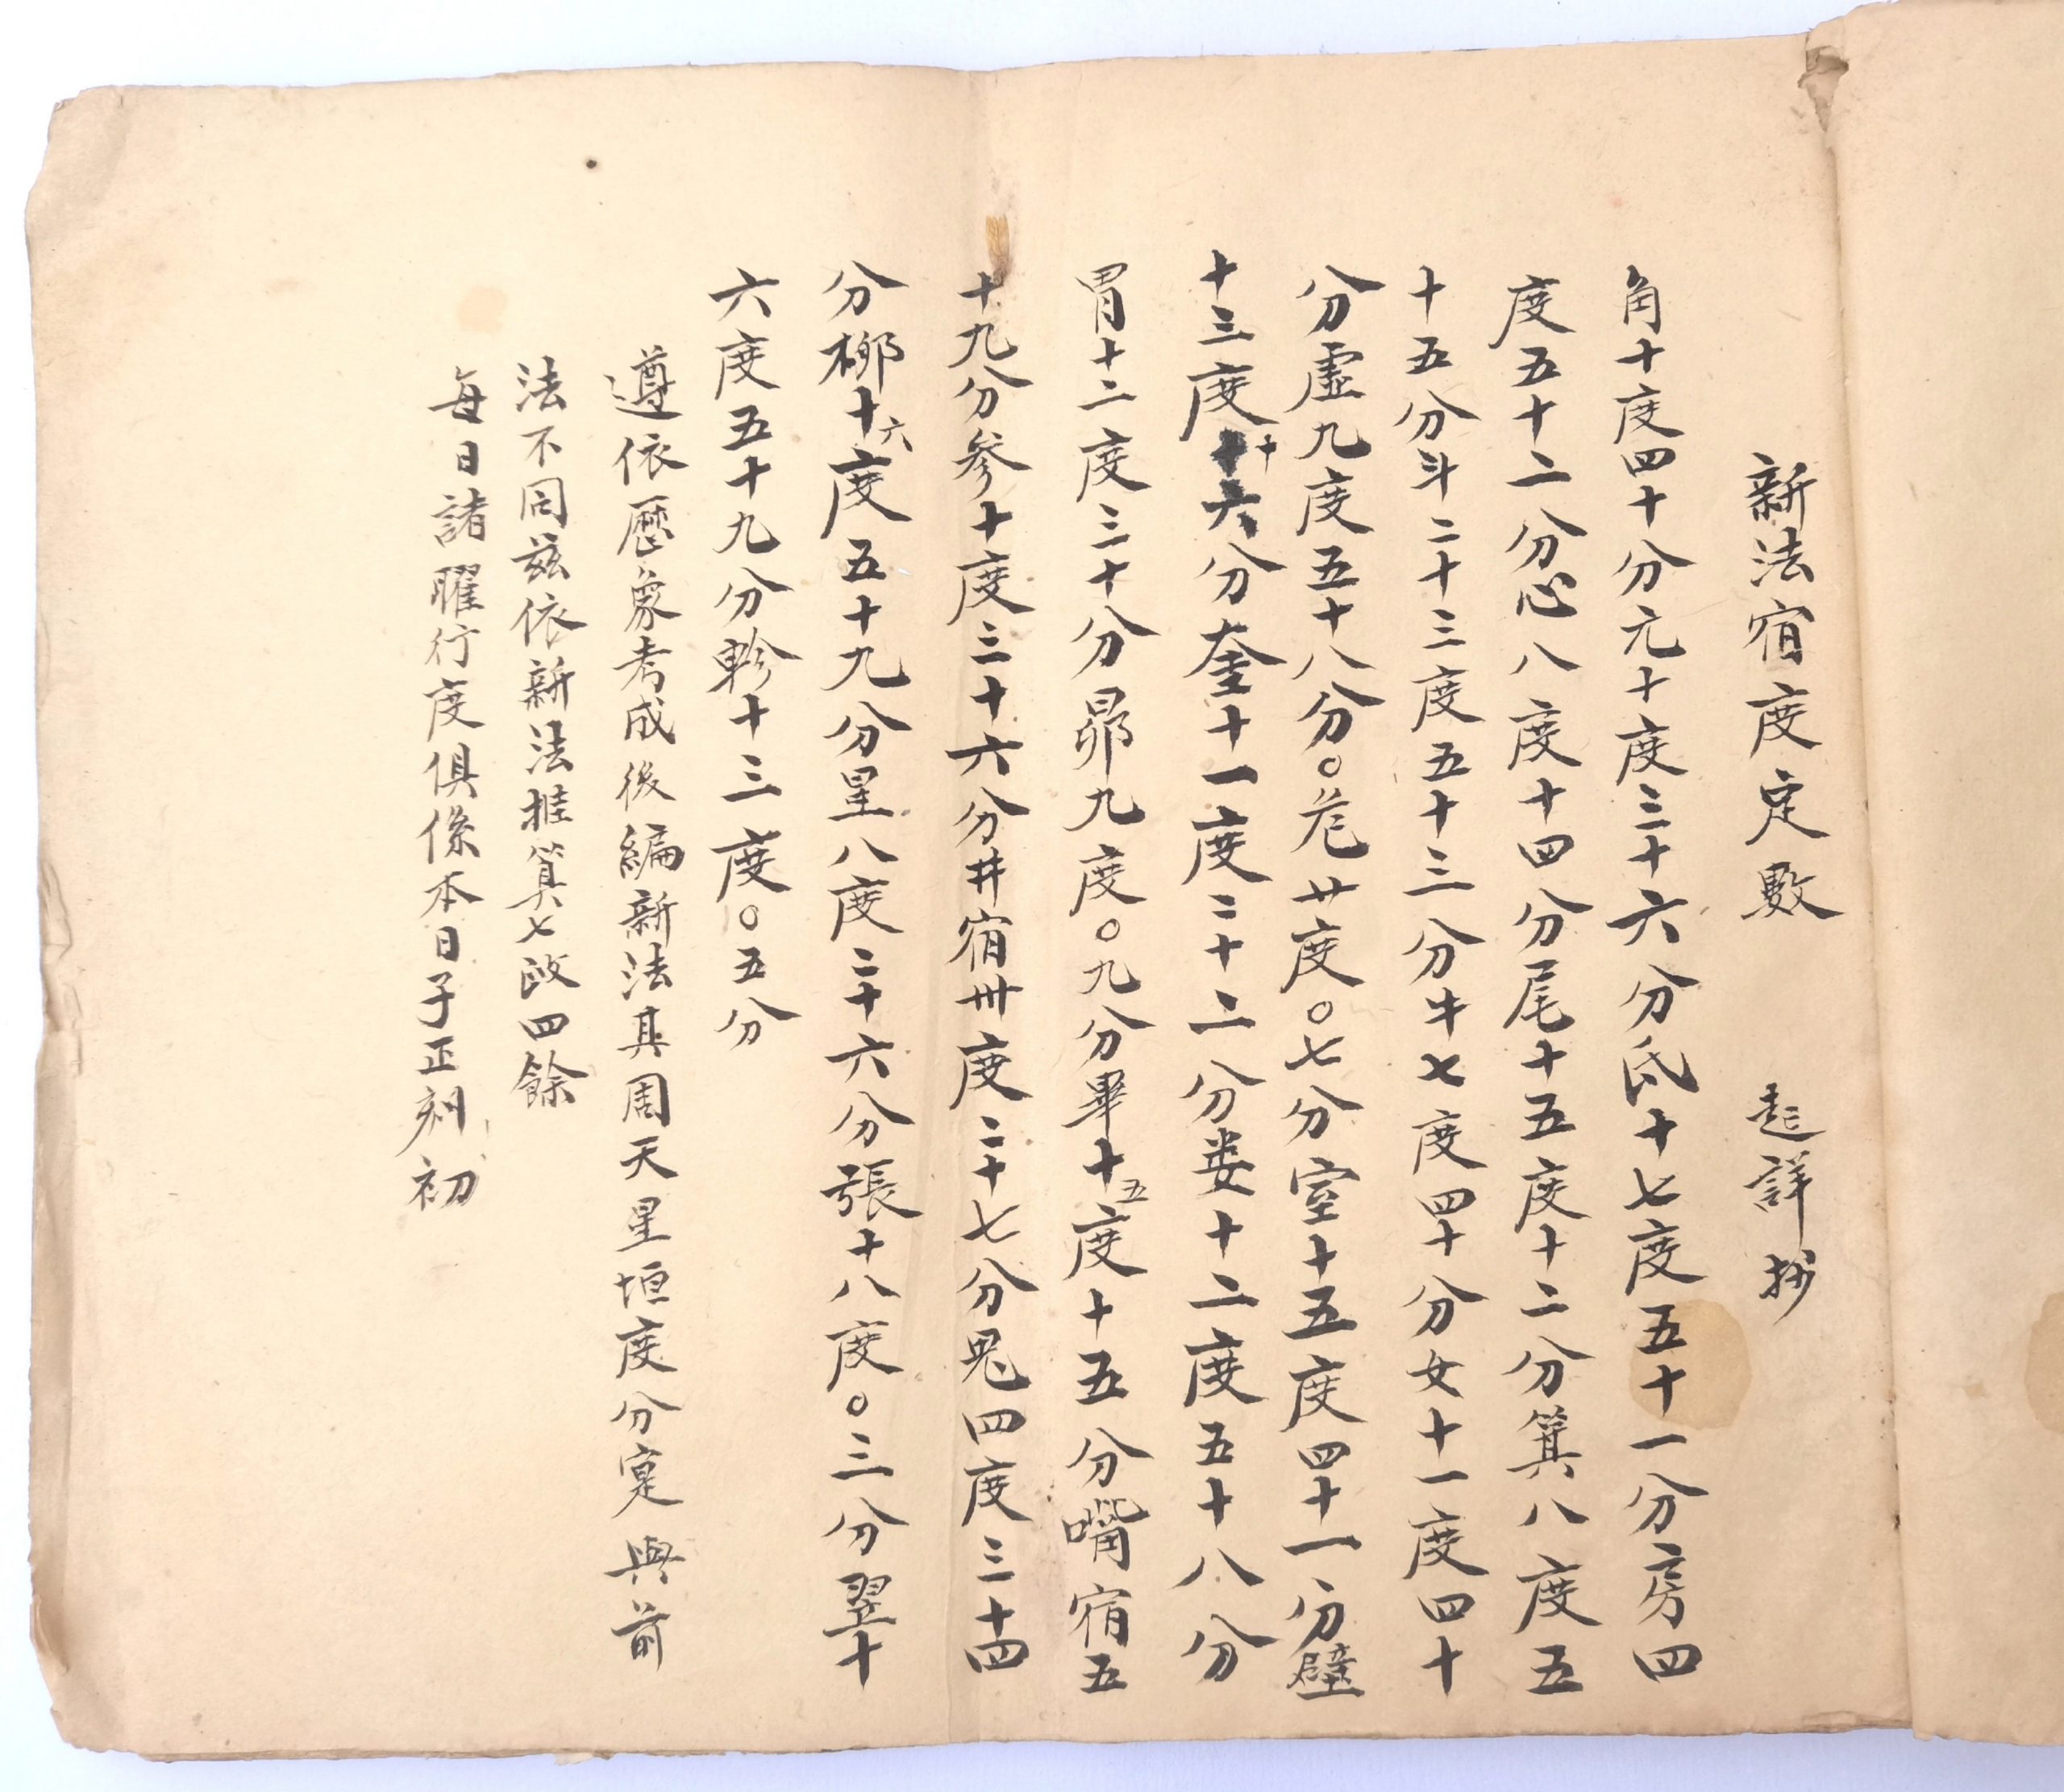 新法宿度定數 起詳抄
角十度四十分亢十度三十六分氐十七度五十一分房四
度五十二分心八度十四分尾十五度十二分箕八度五
十五分斗二十三度五十三分牛七度四十分女十一度四十
分虛九度五十八分。危廿度〇七分室十五度四十一分壁
十三度十六分奎十一度二十二分娄十二度五十八分
胃十二度三十分昴九度〇九分畢十五度十五分嘴宿五
十九分参十度三十六分井宿卅度二十七分鬼四度三十四
分柳十六度五十九分星八度二十六分張十八度〇三分翌十
六度五十九分軫十三度〇五分
遵依歷象考成後編新法其周天星垣度分寔與前
法不同茲依新法推算七政四餘
每日諸曜行度俱係本日子正刻初